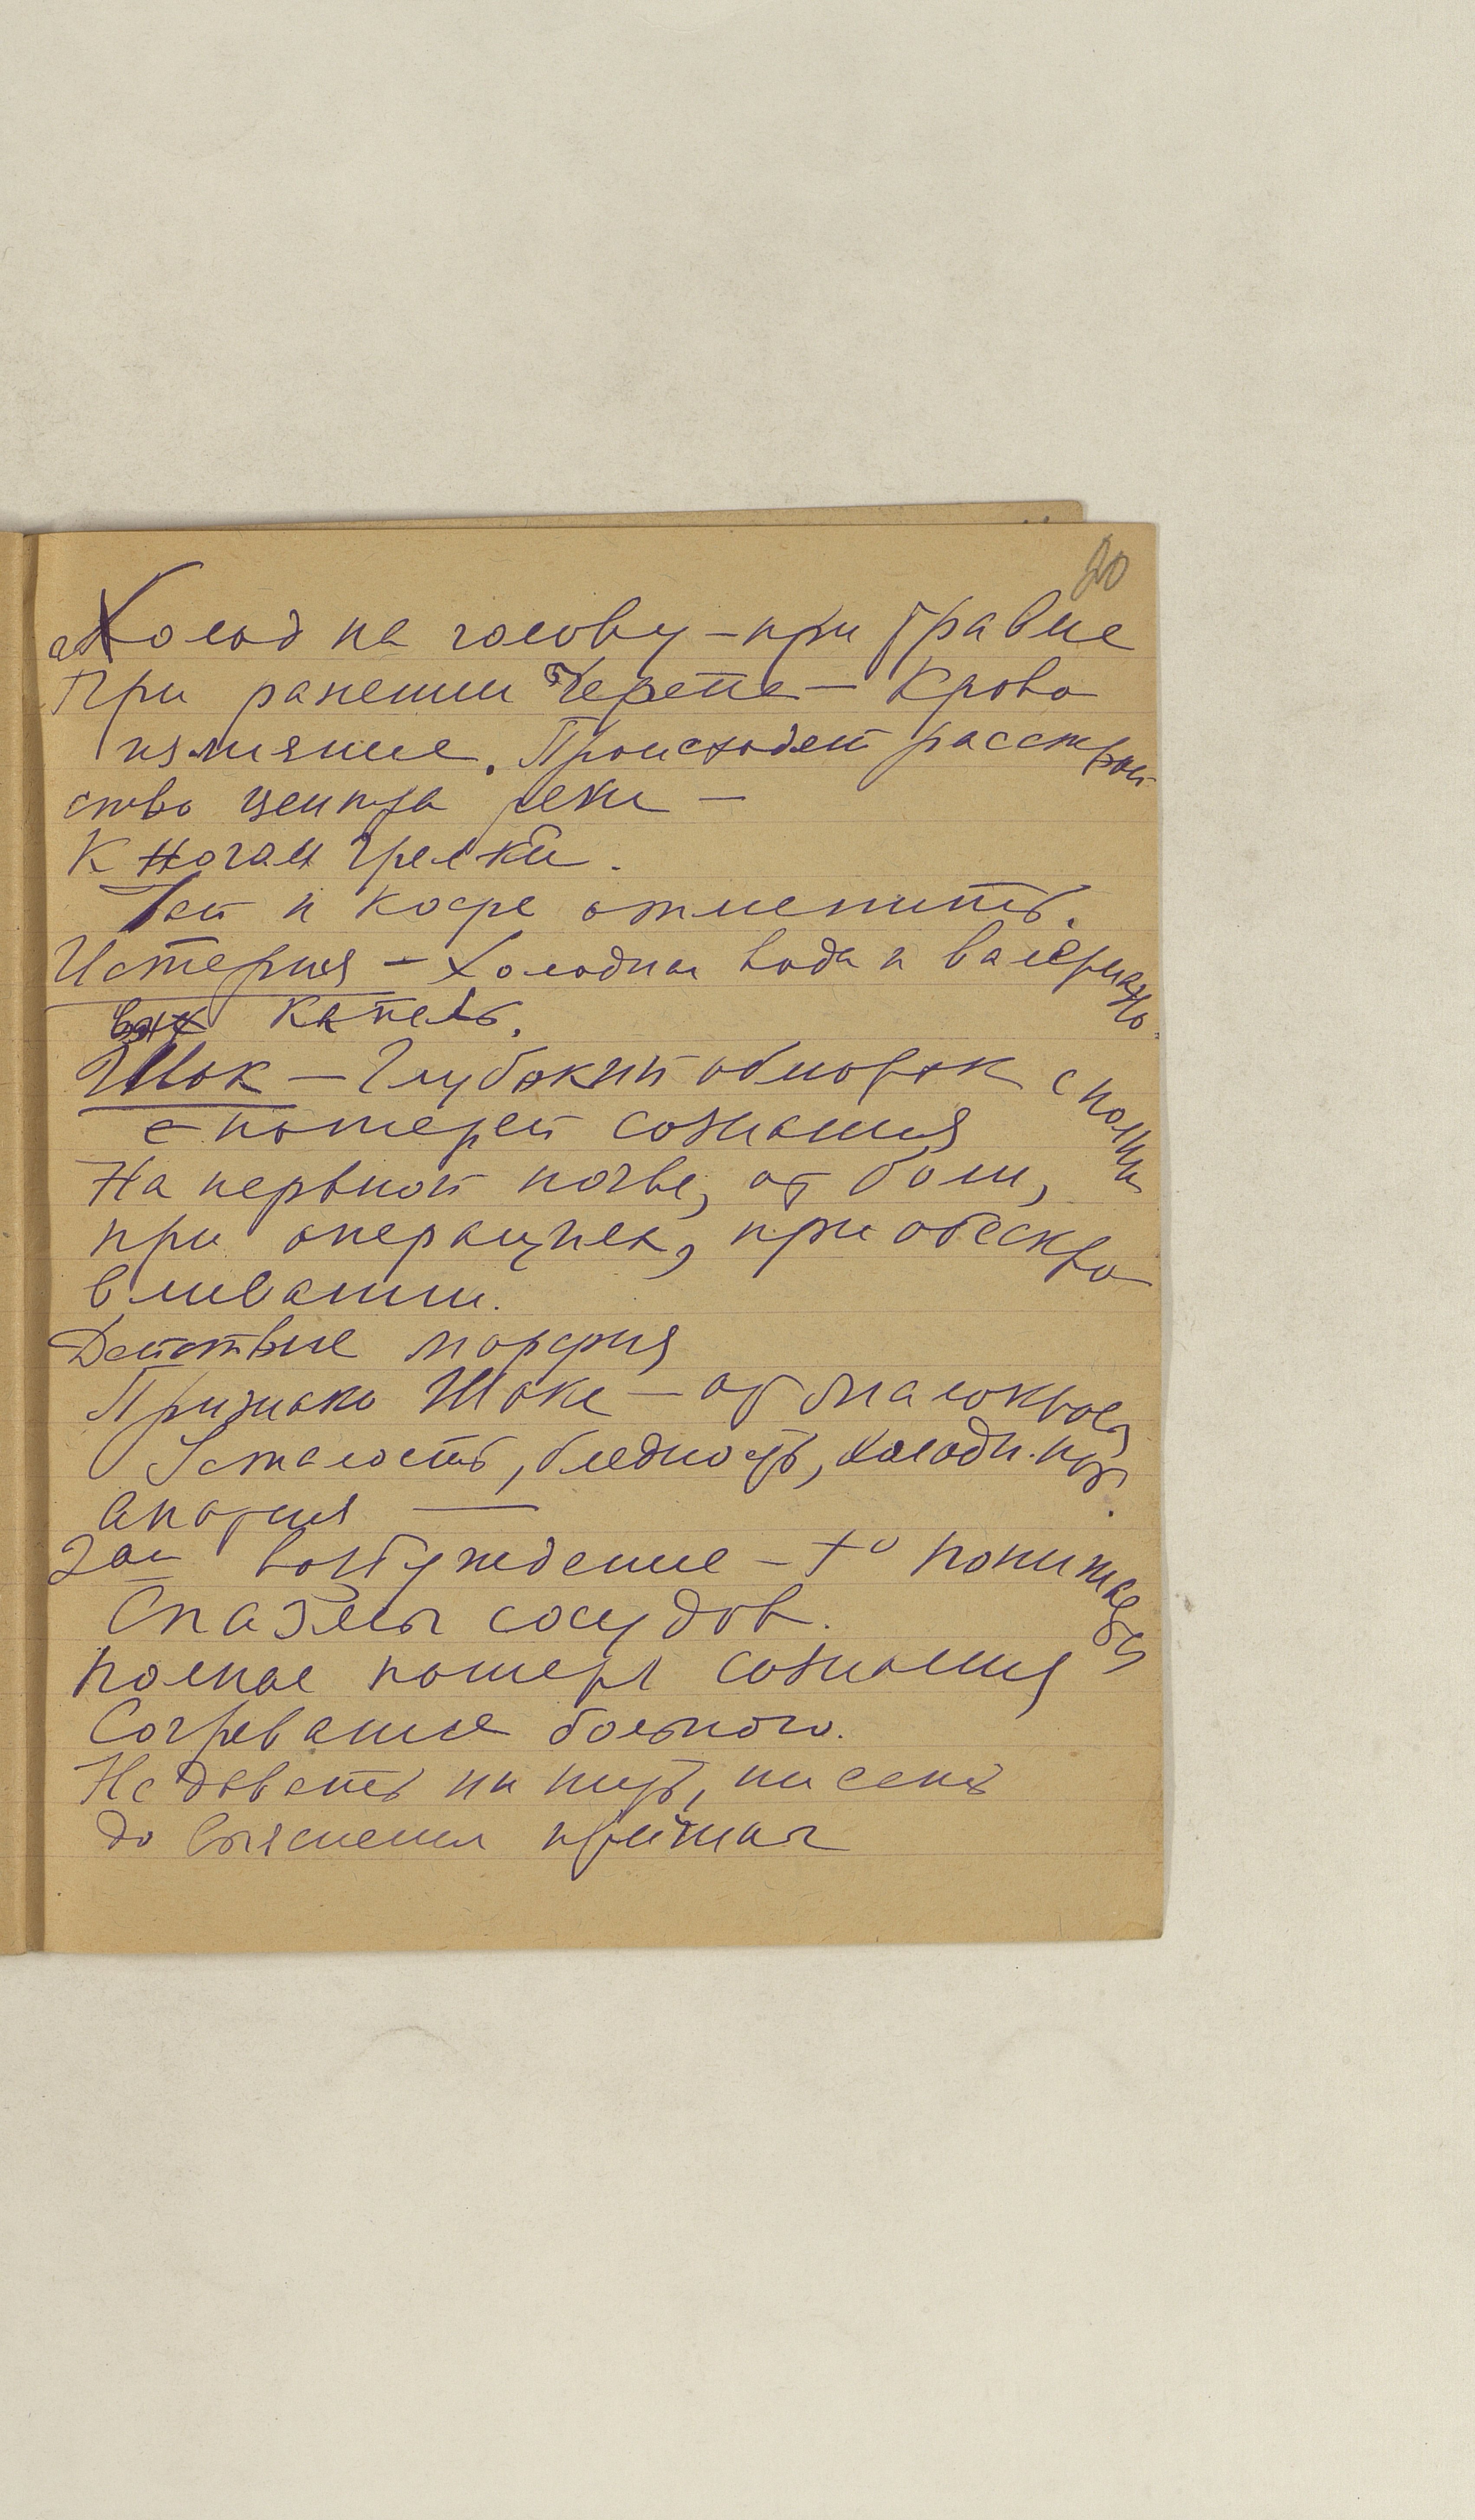 20
Холод на голову – при травме
При ранении черепа – Крово
излияние. Происходит расстрой
ство центра речи –
К ногам грелки.
Чай и кофе отменить.
Истерия – Холодная вода и валериано
вых капель.
Шок – Глубокий обморок с полной
потерей сознания
На нервной почве, от боли,
при операциях, при обескро
вливании.
Действие морфия
Признаки Шока – от малокровия
Усталость, бледность, холодн. пот.
апатия —
2ой возбуждение – t° понижается
Спазмы сосудов.
полная потеря сознания
Согревание больного.
Не давать ни пить, ни есть
до выяснения причины